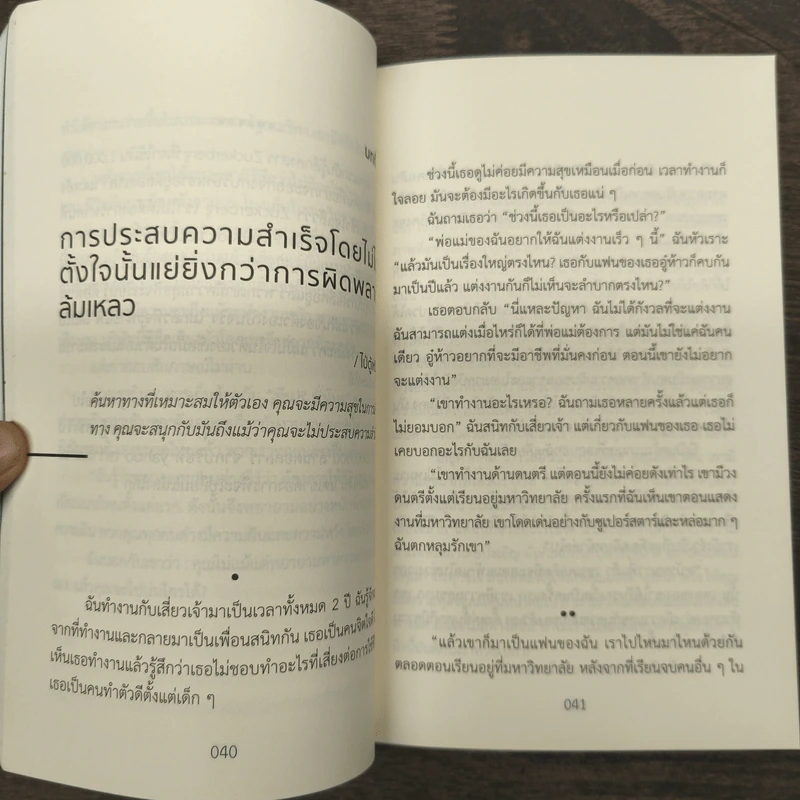 การประสบความสำเร็จโดยไม่
ตั้งใจนั้นแย่ยิ่งกว่าการผิดพลา
ล้มเหลว
ค้นหาทางที่เหมาะสมให้ตัวเอง คุณจะมีความสุขในการ
ทาง คุณจะสนุกกับมันถึงแม้ว่าคุณจะไม่ประสบความสำ
•
ฉันทำงานกับเสี่ยวเจ้ามาเป็นเวลาทั้งหมด 2 ปี ฉันรู้จัก
จากที่ทำงานและกลายมาเป็นเพื่อนสนิทกัน เธอเป็นคนจิตใจดี
เห็นเธอทำงานแล้วรู้สึกว่าเธอไม่ชอบทำอะไรที่เสี่ยงต่อการ
เธอเป็นคนทำตัวดีตั้งแต่เด็ก ๆ
040
ช่วงนี้เธอดูไม่ค่อยมีความสุขเหมือนเมื่อก่อน เวลาทำงานก็
ใจลอย มันจะต้องมีอะไรเกิดขึ้นกับเธอแน่ ๆ
ฉันถามเธอว่า “ช่วงนี้เธอเป็นอะไรหรือเปล่า?”
“พ่อแม่ของฉันอยากให้ฉันแต่งงานเร็ว ๆ นี้” ฉันหัวเราะ
“แล้วมันเป็นเรื่องใหญ่ตรงไหน? เธอกับแฟนของเธออู๋ห้าวก็คบกัน
มาเป็นปีแล้ว แต่งงานกันก็ไม่เห็นจะลำบากตรงไหน?”
เธอตอบกลับ “นี่แหละปัญหา ฉันไม่ได้กังวลที่จะแต่งงาน
ฉันสามารถแต่งเมื่อไหร่ก็ได้ที่พ่อแม่ต้องการ แต่มันไม่ใช่แค่ฉันคน
เดียว อู๋ห้าวอยากที่จะมีอาชีพที่มั่นคงก่อน ตอนนี้เขายังไม่อยาก
จะแต่งงาน”
“เขาทำงานอะไรเหรอ? ฉันถามเธอหลายครั้งแล้วแต่เธอก็
ไม่ยอมบอก” ฉันสนิทกับเสี่ยวเจ้า แต่เกี่ยวกับแฟนของเธอ เธอไม่
เคยบอกอะไรกับฉันเลย
“เขาทำงานด้านดนตรี แต่ตอนนี้ยังไม่ค่อยดังเท่าไร เขามีวง
ดนตรีตั้งแต่เรียนอยู่มหาวิทยาลัย ครั้งแรกที่ฉันเห็นเขาตอนแสดง
งานที่มหาวิทยาลัย เขาโดดเด่นอย่างกับซูเปอร์สตาร์และหล่อมาก ๆ
ฉันตกหลุมรักเขา”
••
“แล้วเขาก็มาเป็นแฟนของฉัน เราไปไหนมาไหนด้วยกัน
ตลอดตอนเรียนอยู่ที่มหาวิทยาลัย หลังจากที่เรียนจบคนอื่น ๆ ใน
041